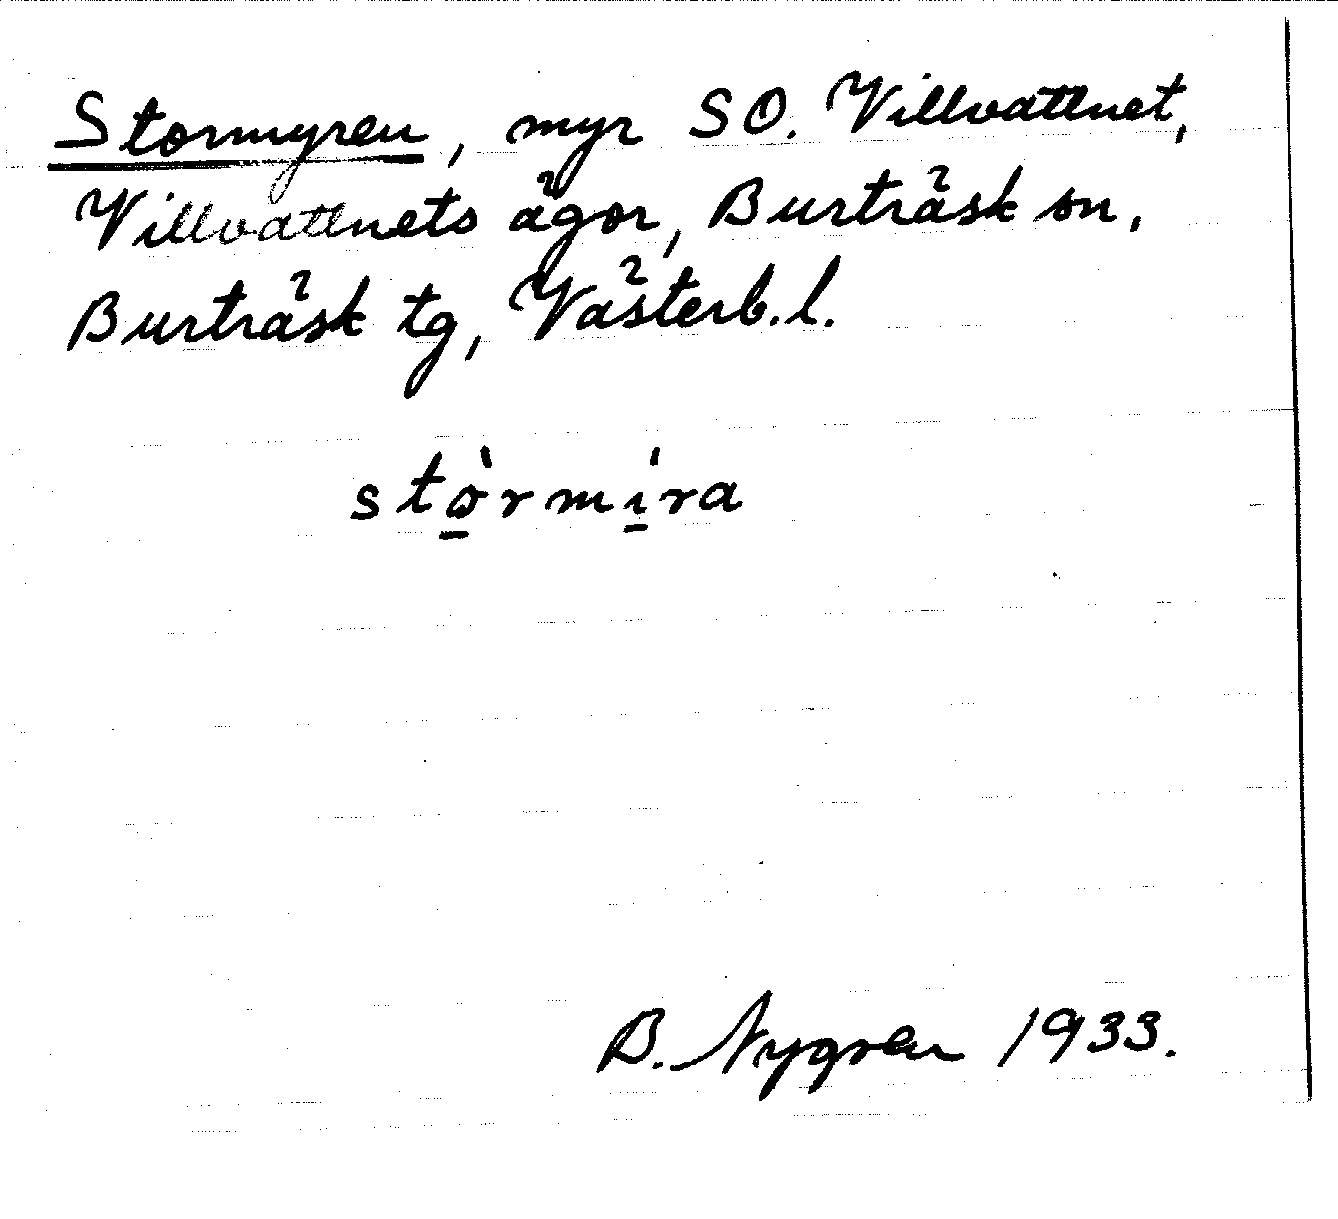 Stormyren, myr SO. Villvattnet,
Villvattnets ägor, Burträsk sn,
Burträsk tg, Västerb.l.
stò̱rmí̱ra
B. Nygren 1933.